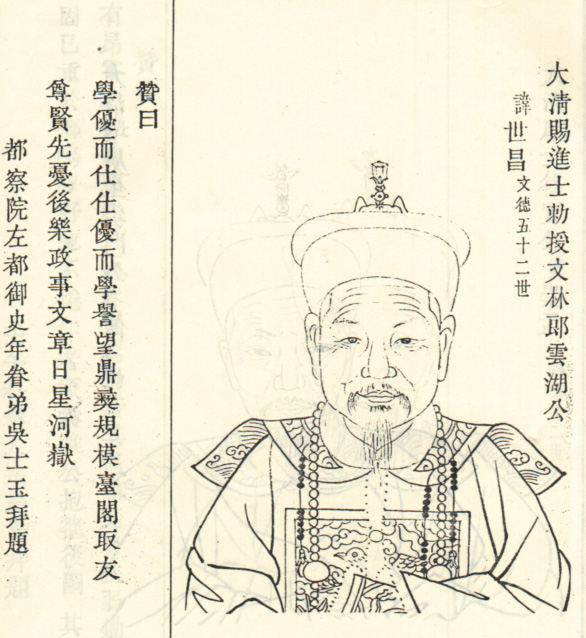 大清賜進士勅授文林郎雲湖公
諱世昌文德五十二世
贊曰
學優而仕仕優而學譽望鼎彝規模臺閣取友
尊賢先憂後樂政事文章日星河嶽
都察院左都御史年眷弟吳士玉拜題